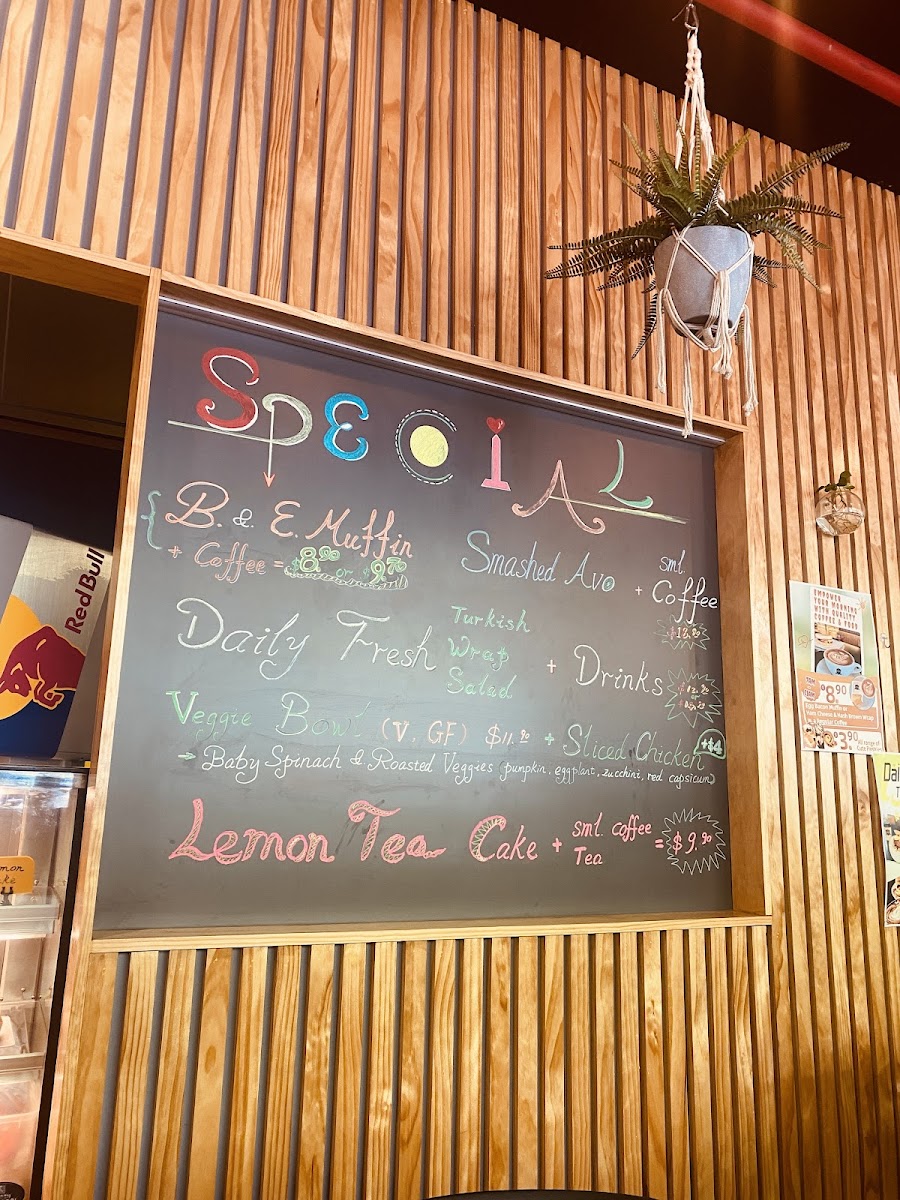 SPECIAL
B. & E. Muffin
+ Coffee = $8.90 or $9.70
Smashed Avo + sml. Coffee
$12.90
Daily Fresh Turkish Wrap Salad + Drinks
Veggie Bowl (V, GF) $11.90 + Sliced Chicken +$4
→ Baby Spinach & Roasted Veggies (pumpkin, eggplant, zucchini, red capsicum)
Lemon Tea Cake + sml. coffee Tea = $9.90
Red Bull
EMPOWER
YOUR MORNING
WITH QUALITY
COFFEE & FOOD
$8.90
Egg Bacon Muffin or
Ham Cheese & Hash Brown Wrap
Regular Coffee
$3.90